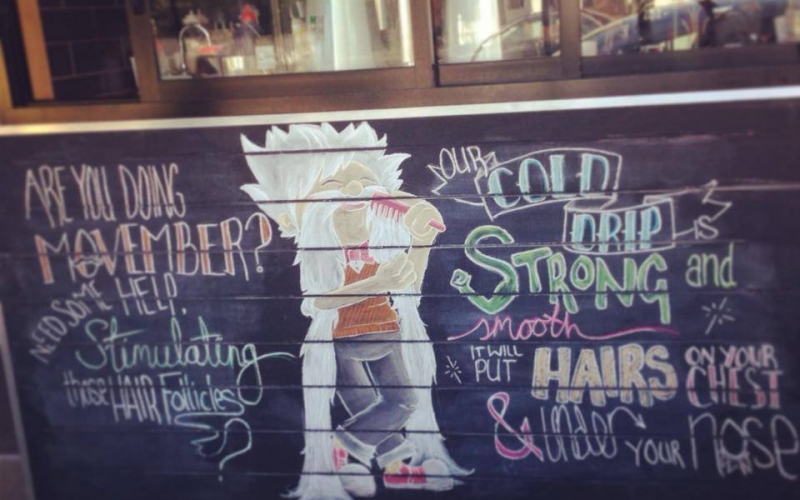 ARE YOU DOING
MOVEMBER?
NEED SOME HELP.
Stimulating
those HAIR Follicles
?
OUR COLD
DRIP IS
STRONG and
smooth
IT WILL PUT HAIRS ON YOUR CHEST
& under YOUR nose